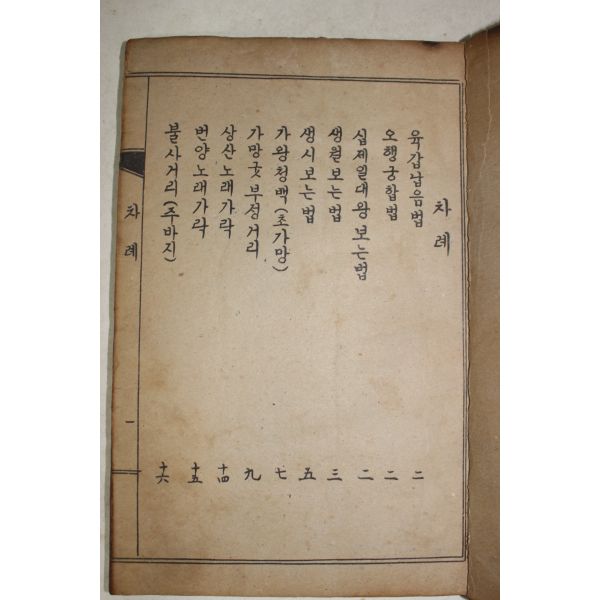 차례
육갑납음법 二
오행궁합법 二
십제일대왕 보는법 二
생월보는법 三
생시보는법 五
가왕청백(초가망) 七
가망굿부정거리 九
상산노래가락 十四
번양노래가락 十五
불사거리(주바지) 十六
차례 一